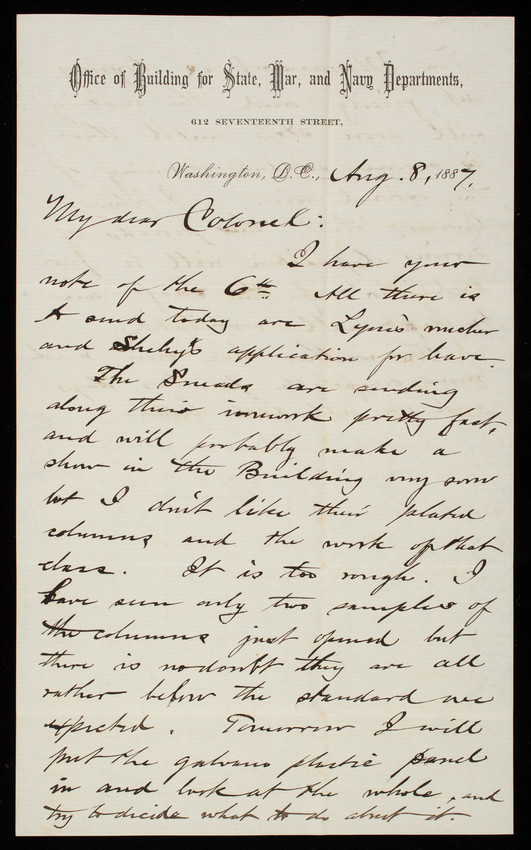 Office of Building for State, War, and Navy Departments,
612 SEVENTEENTH STREET,
Washington, D.C., Aug. 8, 1887.
My dear Colonel:
I have your
note of the 6th. All there is
to send today are voucher
and application for leave.
The Sneads are sending
along their ironwork pretty fast,
and will probably make a
show in the Building very soon
but I don't like their plated
columns and the work of that
class. It is too rough. I
have seen only two samples of
the columns just opened but
there is no doubt they are all
rather below the standard we
expected. Tomorrow I will
put the galvano plastic panel
in and look at the whole, and
try to decide what to do about it.